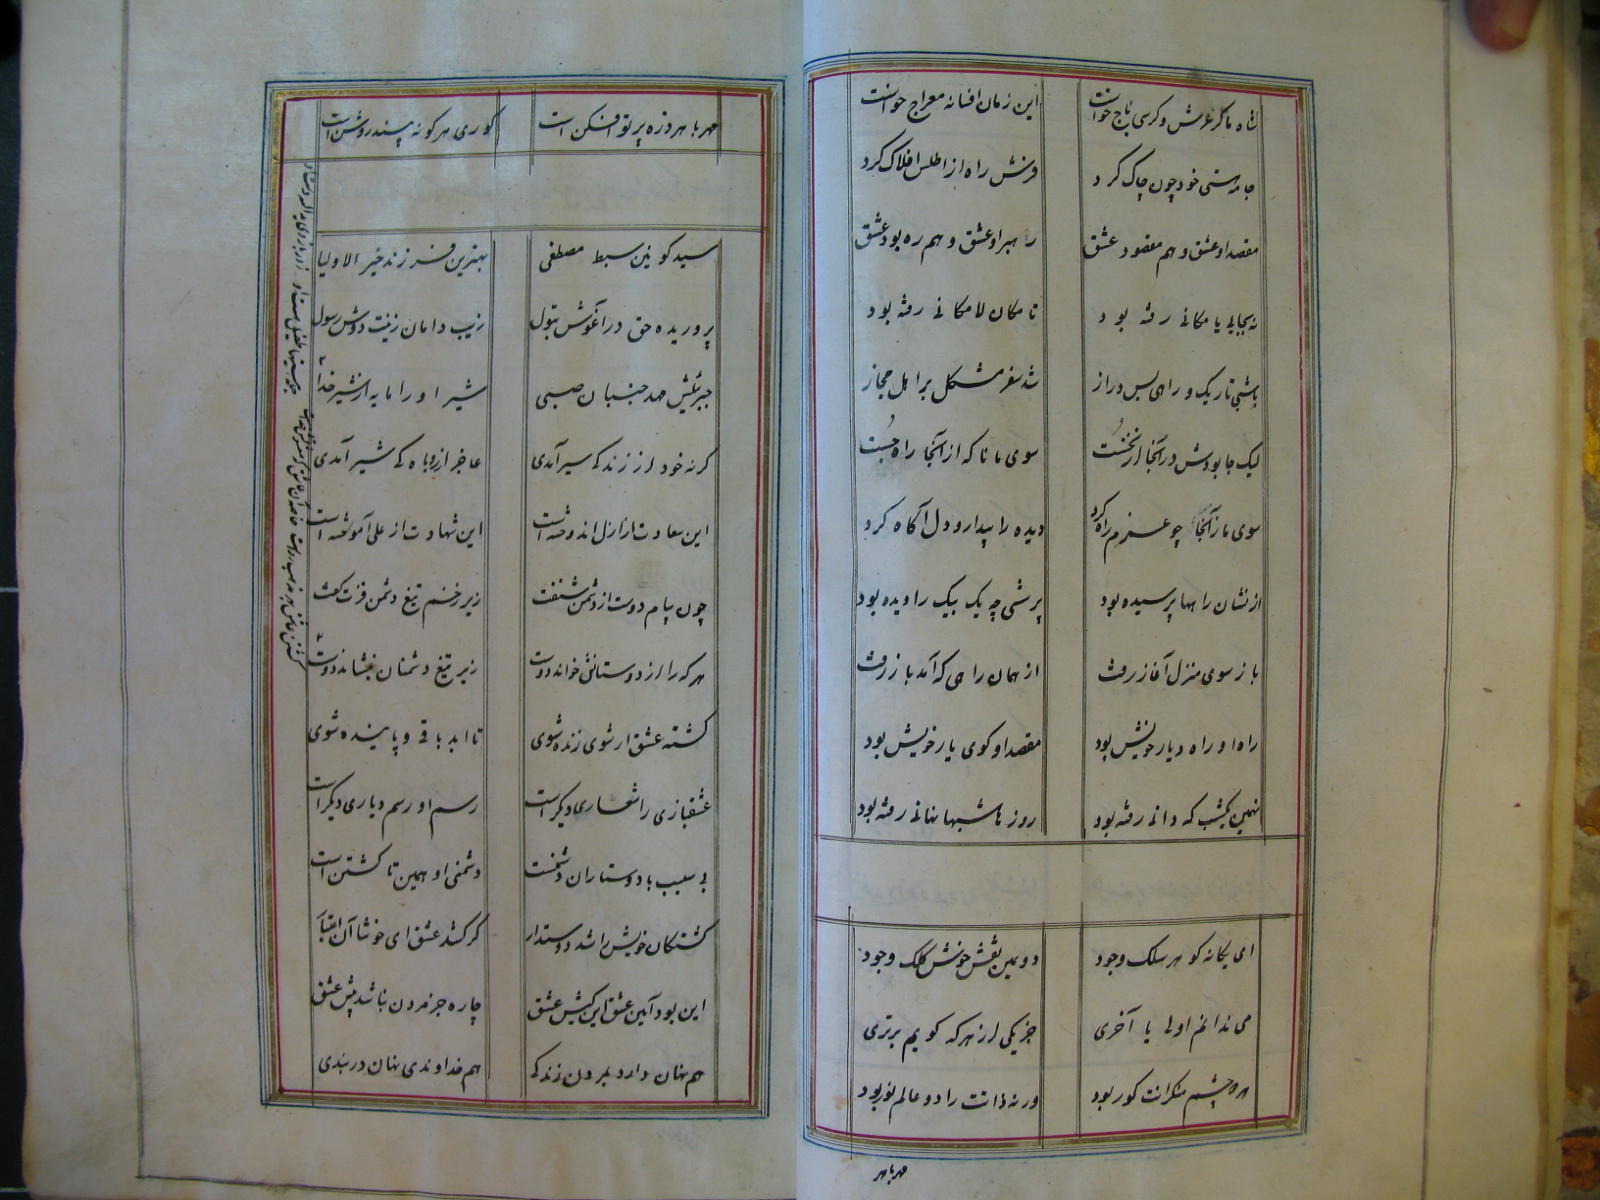 شاه ما کز عرش و کرسی تاج خواست این زمان افسانه معراج خواست
جامه هستی خود چون چاک کرد فرش راه از اطلس افلاک کرد
مقصد او عشق و هم مقصود عشق راهبر او عشق و هم ره بود عشق
نه بجایی یا مکانی رفته بود تا مکان لامکانی رفته بود
باشبی تاریک و راهی بس دراز شد سفر مشکل بر اهل مجاز
لیک جا بودش در آنجا از نخست سوی ما ناگه از آنجا راه جست
سوی ما ز آنجا چو عزم راه کرد دیده را بیدار و دل آگاه کرد
از نشان راهها پرسیده بود پرشی چه یک بیک را دیده بود
باز سوی منزل آغاز رفت از همان راهی که آمد باز رفت
راه او راه دیار خویش بود مقصد او کوی یار خویش بود
نه همین یکشب که دانی رفته بود روزها شبها نهانی رفته بود
ای یگانه گوهر سلک وجود دومین نقش خوش کلک وجود
می ندانم اولی یا آخری جز یکی از هر که گویم برتری
هر دو چشم منکرانت کور بود ورنه ذاتت را دو عالم نور بود
مهر با هر
مهر با هر ذره پرتو افکن است کوری هر کو نه بیند روشن است
سید کونین سبط مصطفی بهترین فرزند خیر الاولیا
پروریده حق در آغوش بتول زیب دامان زینت دوش رسول
جبرئیلش مهد جنبان صبی شیر او را مایه از شیر خدا
گرنه خود از زندگی سیر آمدی عاجز از روباه کی شیر آمدی
این سعادت از ازل اندوخته است این شهادت از علی آموخته است
چون پیام دوست از دشمن شنفت زیر زخم تیغ دشمن فزت گفت
هر که را از دوستانش خواند دوست زیر تیغ دشمنان بنشاند دوست
کشته عشق ار شوی زنده شوی تا ابد باقی و پاینده شوی
عشقبازی را شعاری دیگر است رسم او رسم دیاری دیگر است
بی سبب با دوستاران دشمنست دشمنی او همین تا کشتن است
کشتگان خویش را شد دوستدار گر کشد عشق ای خوشا آن اعتبار
این بود آیین عشق این کیش عشق چاره جز مردن نباشد پیش عشق
هم نهان دارد بمردن زندگی هم خداوندی نهان در بندگی